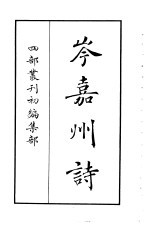 岑嘉州詩
四部叢刊初編集部